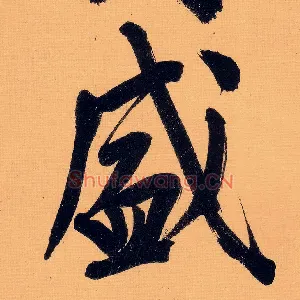 盛
Shufawang.CN